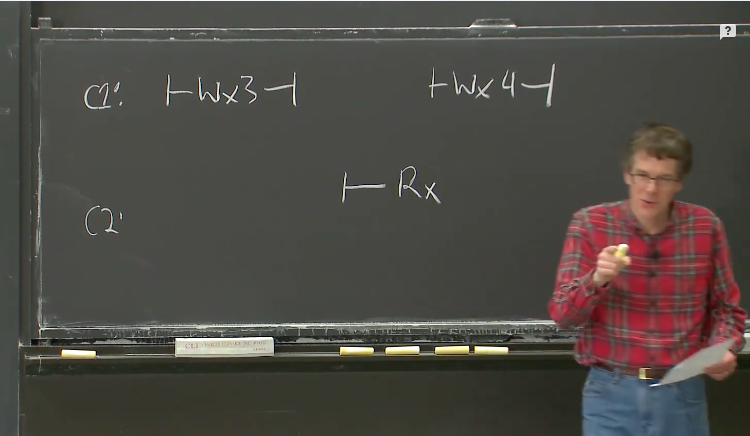 C1: |-Wx3-| |-Wx4-|
|- Rx
C2:
?